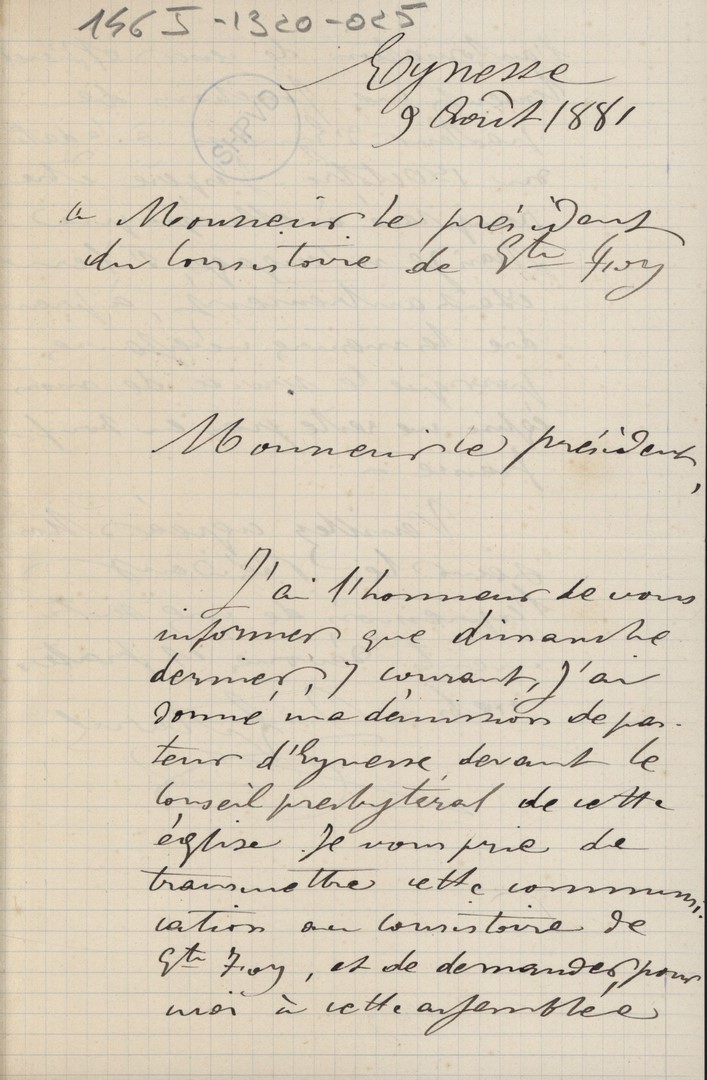 146 J -1320-025
Eynesse
SHPVD
9 Août 1881
a Monsieur le président
du Consistoire de Ste Foy
Monsieur le président,
J'ai l'honneur de vous
informer que dimanche
dernier, 7 courant, j'ai
donné ma démission de pas-
teur d'Eynesse devant le
Conseil presbytéral de cette
église. Je vous prie de
transmettre cette communi-
cation au consistoire de
Ste Foy, et de demander, pour
moi à cette assemblée